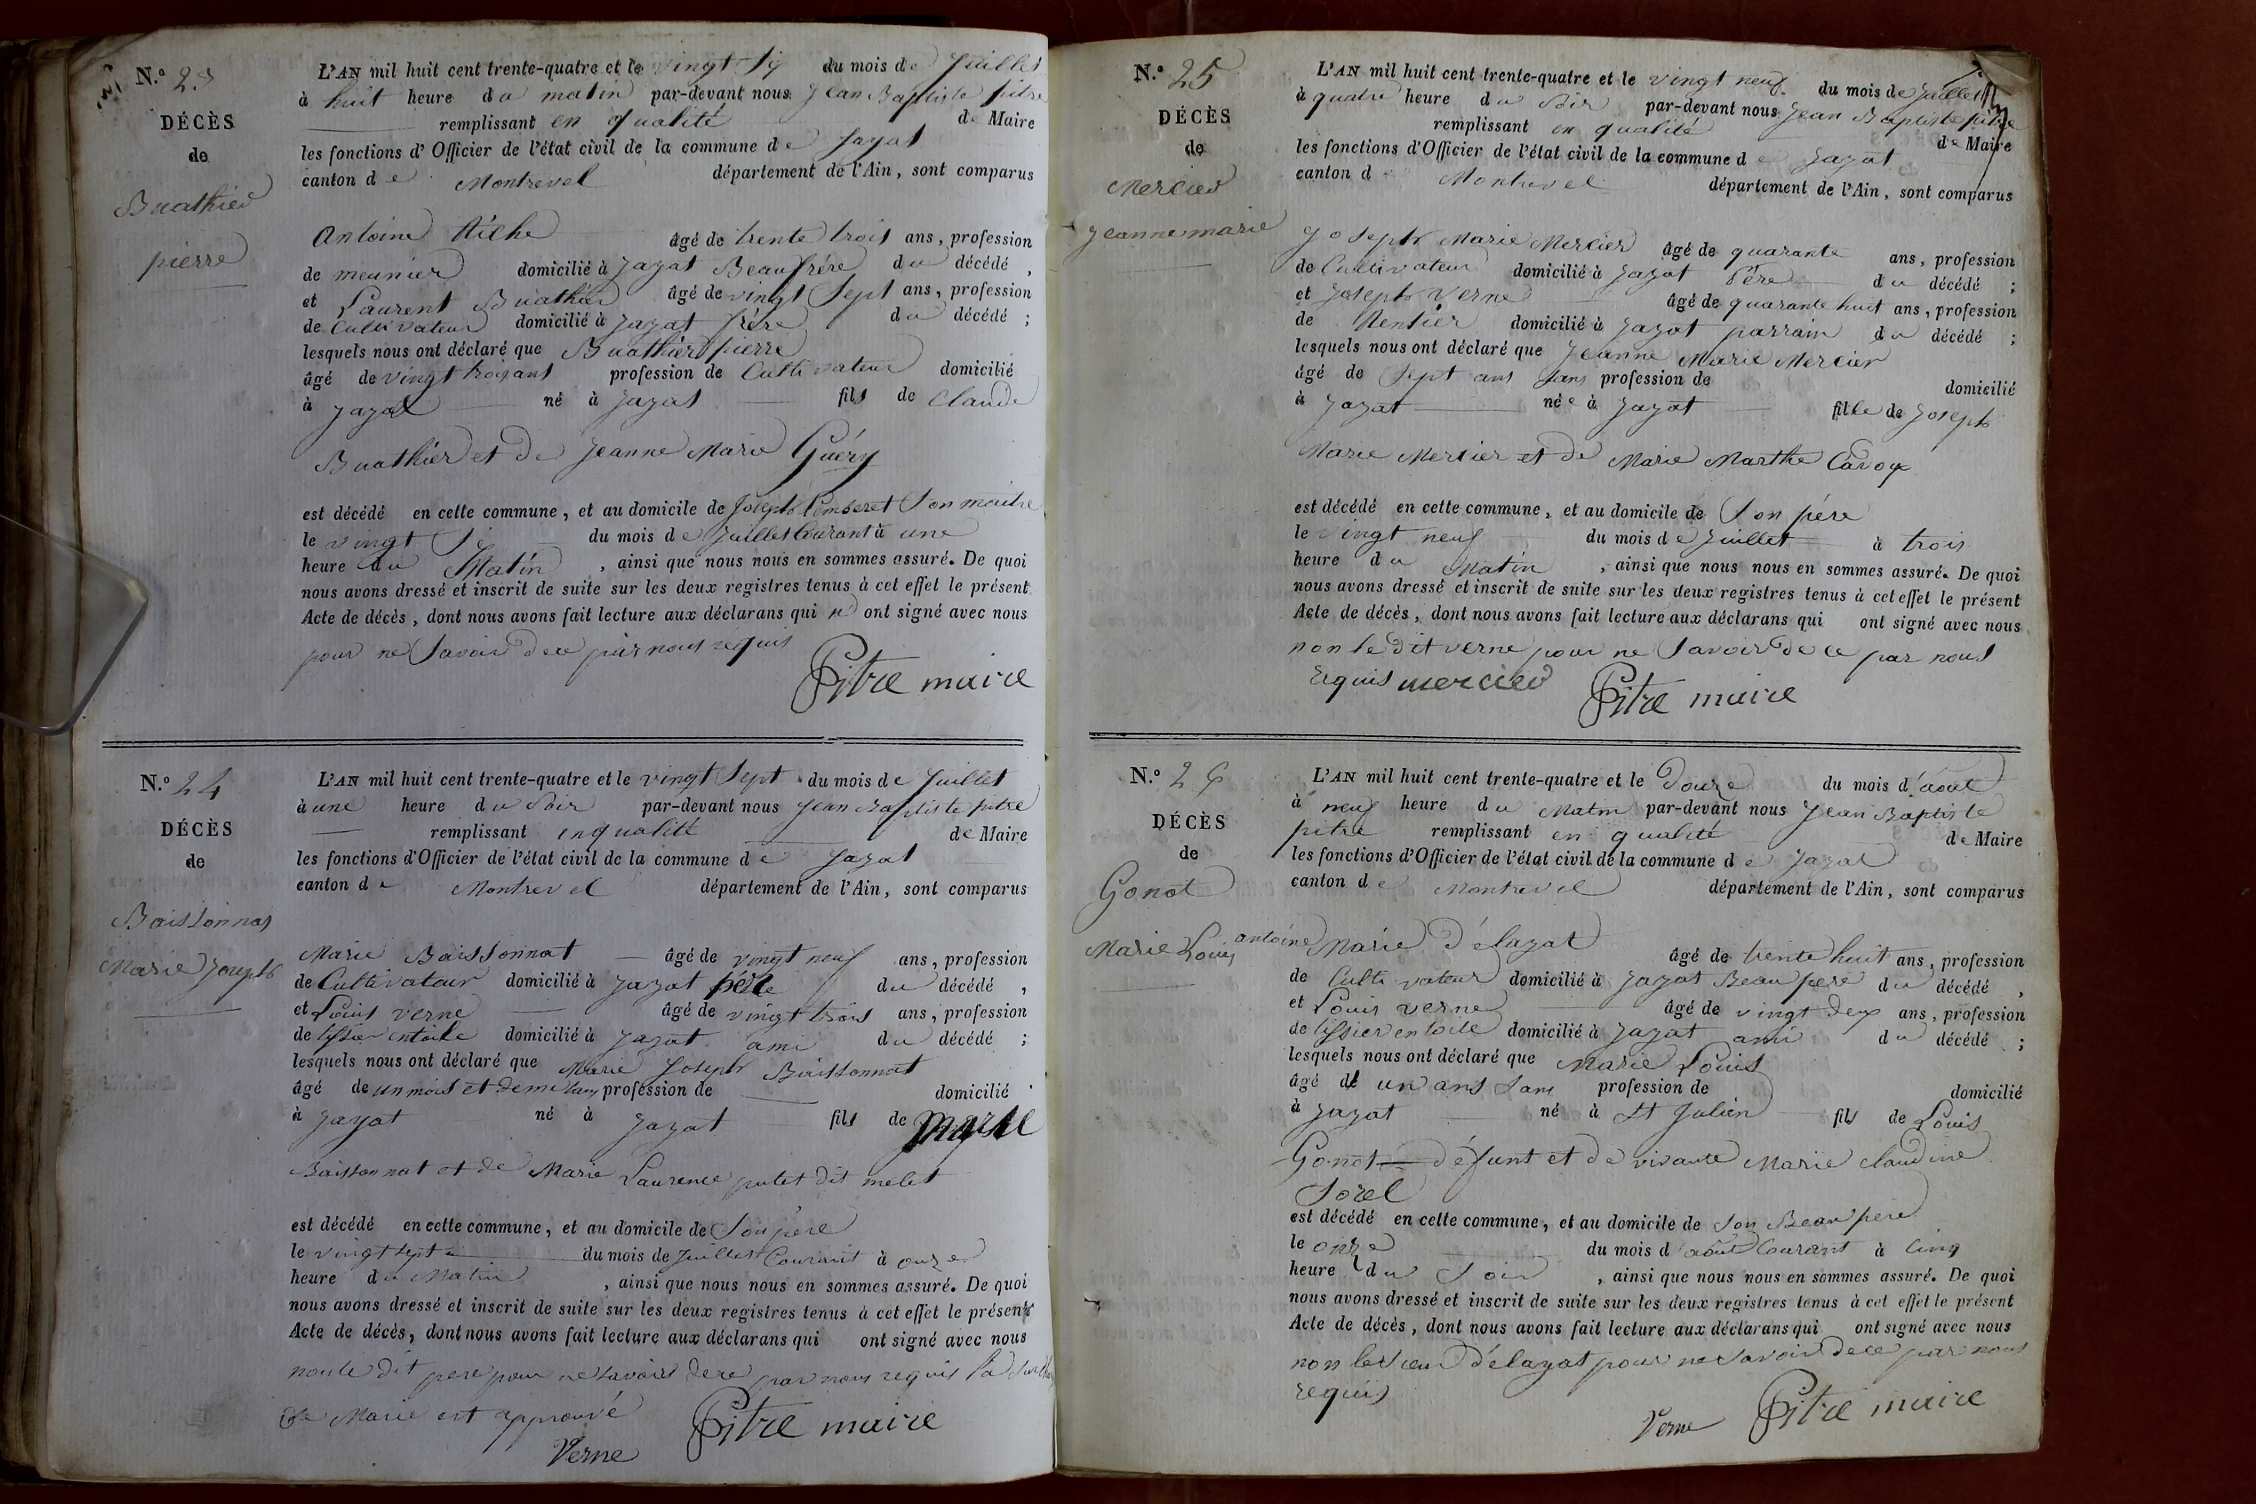 N.º 23
DÉCÈS
de
Buathier
pierre
L'AN mil huit cent trente-quatre et le vingt Six du mois de Juillet
à huit heure du matin par-devant nous Jean Baptiste pitre
remplissant en qualité de Maire
les fonctions d'Officier de l'état civil de la commune de Jayat
canton de Montrevel département de l'Ain, sont comparus
Antoine âgé de trente trois ans, profession
de meunier domicilié à Jayat Beaufrére du décédé,
et Laurent Buathier âgé de vingt Sept ans, profession
de Cultivateur domicilié à Jayat frére du décédé;
lesquels nous ont déclaré que Buathier pierre
âgé de vingt trois ans profession de Cultivateur domicilié
à Jayat né à Jayat fils de Claude
Buathier et de Jeanne Marie Guéry
est décédé en cette commune, et au domicile de Joseph Son maitre
le vingt Six du mois de Juillet Courant à une
heure du Matin, ainsi que nous nous en sommes assuré. De quoi
nous avons dressé et inscrit de suite sur les deux registres tenus à cet effet le présent
Acte de décès, dont nous avons fait lecture aux déclarans qui n ont signé avec nous
pour ne Savoir de ce par nous requis
Pitre maire
N.º 24
DÉCÈS
de
Boissonnat
Marie Joseph
L'AN mil huit cent trente-quatre et le vingt Sept du mois de Juillet
à une heure du Soir par-devant nous Jean Baptiste pitre
remplissant en qualité de Maire
les fonctions d'Officier de l'état civil de la commune de Jayat
canton de Montrevel département de l'Ain, sont comparus
Marie Boissonnat âgé de vingt neuf ans, profession
de Cultivateur domicilié à Jayat pére du décédé,
et Louis Verne âgé de vingt trois ans, profession
de tissier en toile domicilié à Jayat ami du décédé;
lesquels nous ont déclaré que Marie Joseph Boissonnat
âgé de un mois et demi sans profession de domicilié
à Jayat né à Jayat fils de Marie
Boissonnat et de Marie Laurence putet dit melet
est décédé en cette commune, et au domicile de Son pere
le vingt sept du mois de Juillet Courant à onze
heure du Matin, ainsi que nous nous en sommes assuré. De quoi
nous avons dressé et inscrit de suite sur les deux registres tenus à cet effet le présent
Acte de décès, dont nous avons fait lecture aux déclarans qui ont signé avec nous
non le dit pere pour ne savoir de ce par nous requis la
de Marie est approuvé
Verne Pitre maire
N.º 25
DÉCÈS
de
Mercier
Jeanne marie
L'AN mil huit cent trente-quatre et le vingt neuf du mois de Juillet
à quatre heure du Soir par-devant nous Jean Baptiste pitre
remplissant en qualité de Maire
les fonctions d'Officier de l'état civil de la commune de Jayat
canton d Montrevel département de l'Ain, sont comparus
Joseph Marie Mercier âgé de quarante ans, profession
de Cultivateur domicilié à Jayat Pére du décédé;
et Joseph Verne âgé de quarante huit ans, profession
de Rentier domicilié à Jayat parrain du décédé;
lesquels nous ont déclaré que Jeanne Marie Mercier
âgé de Sept ans Sans profession de domicilié
à Jayat née à Jayat fille de Joseph
Marie Mercier et de Marie Marthe Cavoy
est décédé en cette commune, et au domicile de Son pére
le vingt neuf du mois de Juillet à trois
heure du Matin, ainsi que nous nous en sommes assuré. De quoi
nous avons dressé et inscrit de suite sur les deux registres tenus à cet effet le présent
Acte de décès, dont nous avons fait lecture aux déclarans qui ont signé avec nous
non le dit verne pour ne Savoir de ce par nous
requis mercier Pitre maire
N.º 26
DÉCÈS
de
Gonot
Marie Louis
L'AN mil huit cent trente-quatre et le Douze du mois d'août
à neuf heure du Matin par-devant nous Jean Baptiste
pitre remplissant en qualité de Maire
les fonctions d'Officier de l'état civil de la commune de Jayat
canton de Montrevel département de l'Ain, sont comparus
antoine Marie Délayat âgé de trente huit ans, profession
de Cultivateur domicilié à Jayat Beau pere du décédé,
et Louis Verne âgé de vingt deux ans, profession
de tissier en toile domicilié à Jayat ami du décédé;
lesquels nous ont déclaré que Marie Louis
âgé de un ans Sans profession de domicilié
à Jayat né à St Julien fils de Louis
Gonot défunt et de vivante Marie claudine
Sorel
est décédé en cette commune, et au domicile de Son Beau pere
le onze du mois d août Courant à Cinq
heure du Soir, ainsi que nous nous en sommes assuré. De quoi
nous avons dressé et inscrit de suite sur les deux registres tenus à cet effet le présent
Acte de décès, dont nous avons fait lecture aux déclarans qui ont signé avec nous
non le Sieur Délayat pour ne savoir de ce par nous
requis
Verne Pitre maire